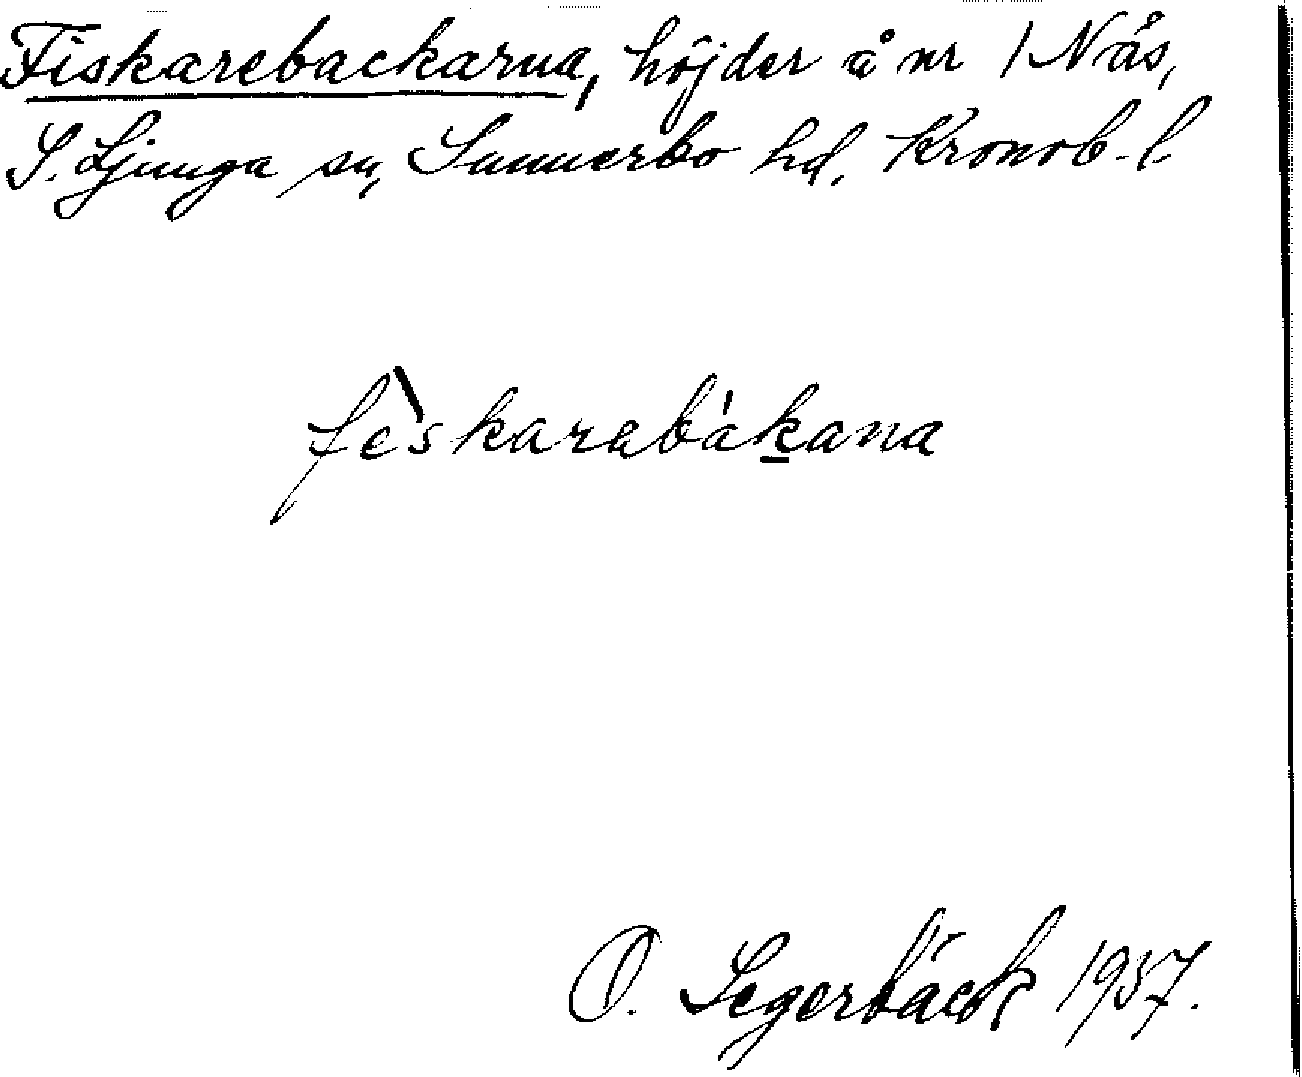 Fiskarebackarna, höjder å nr 1 Nås,
S. Ljunga sn, Sunnerbo hd, Kronob. l.
fèskarabákana
O. Segerbäck 1937.